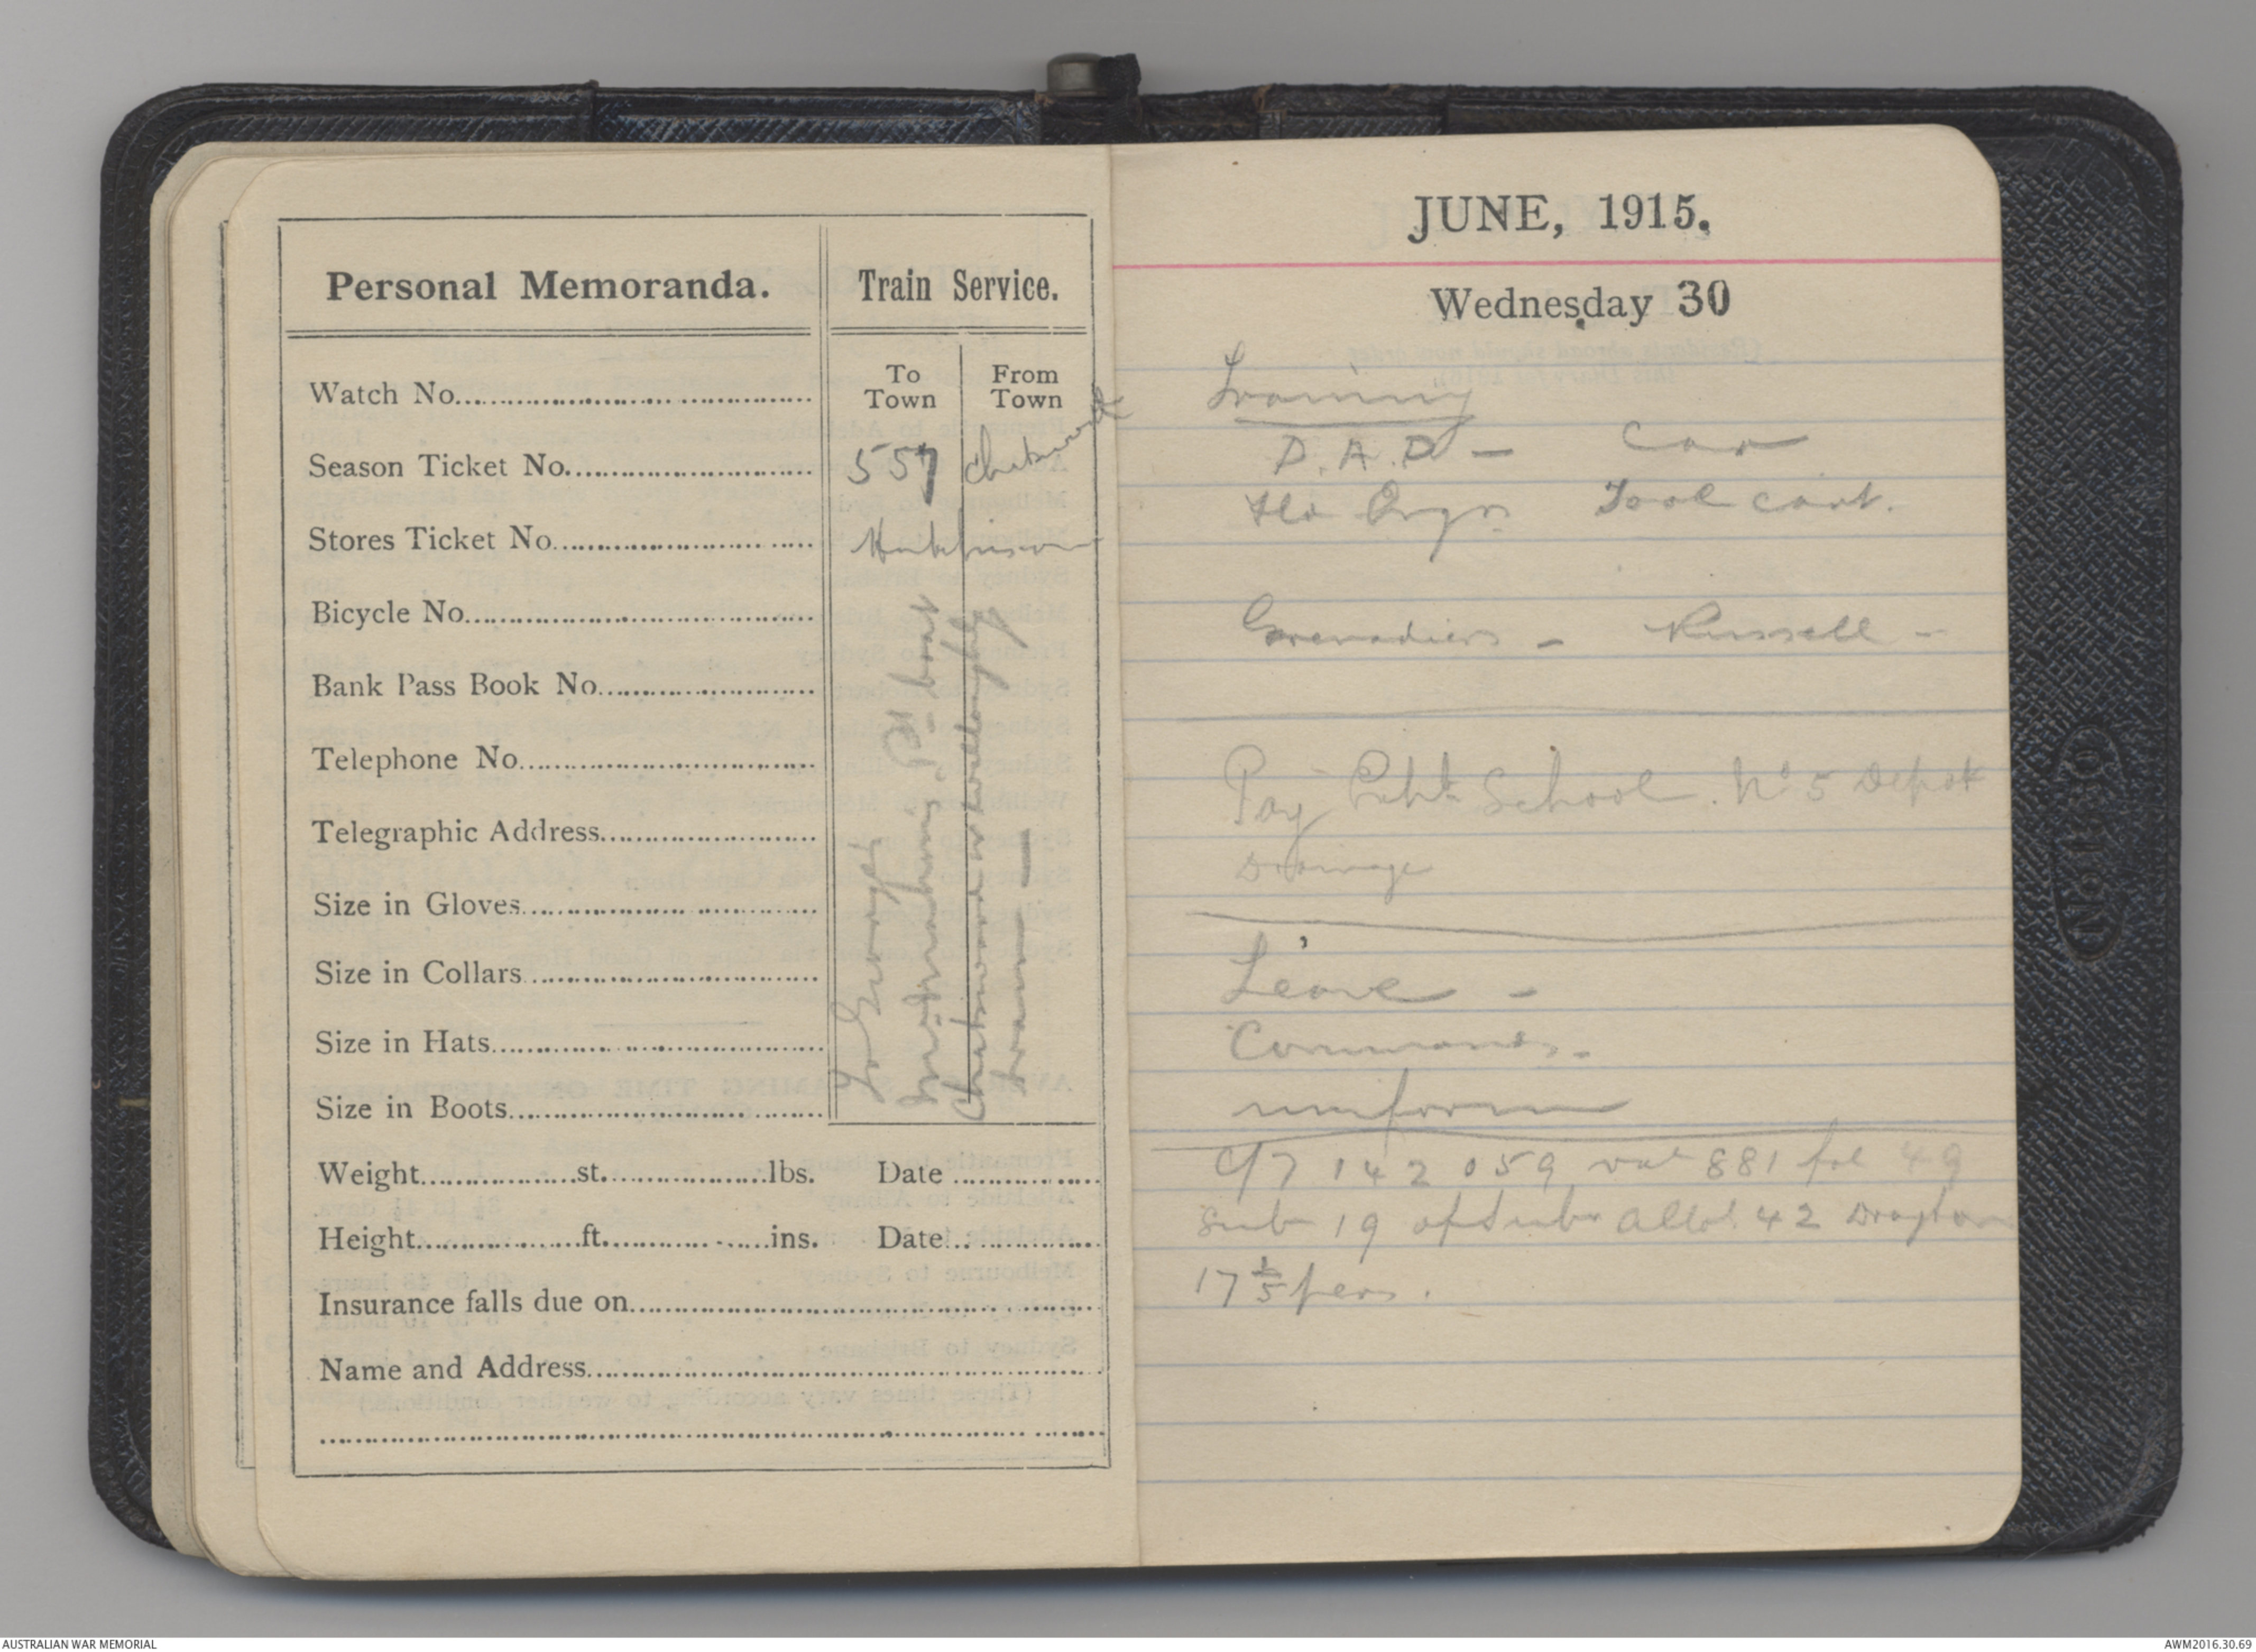 Personal Memoranda.
Train Service.
To Town
From Town
Watch No.
Season Ticket No.
557 Chatswood
Stores Ticket No.
Hutchinson
Bicycle No.
Bank Pass Book No.
Telephone No.
Telegraphic Address
Size in Gloves
Size in Collars
Size in Hats
Size in Boots
Weight st. lbs. Date
Height ft. ins. Date
Insurance falls due on
Name and Address
JUNE, 1915.
Wednesday 30
Training
D.A.D — Car
Hd Qrs Tool cart.
Grenadiers — Russell —
Pay School. No 5 Depot
Drainage
Leave —
Commands.
uniform
C/7 142 059 vol 881 fol 49
Sub 19 of Sub Allot 42 Drayton
17 pers.
OXHIDE
AUSTRALIAN WAR MEMORIAL
AWM2016.30.69